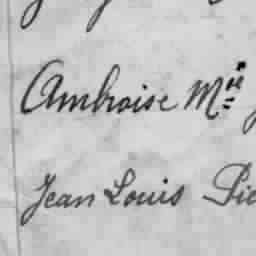 Ambroise M.ii
Jean Louis